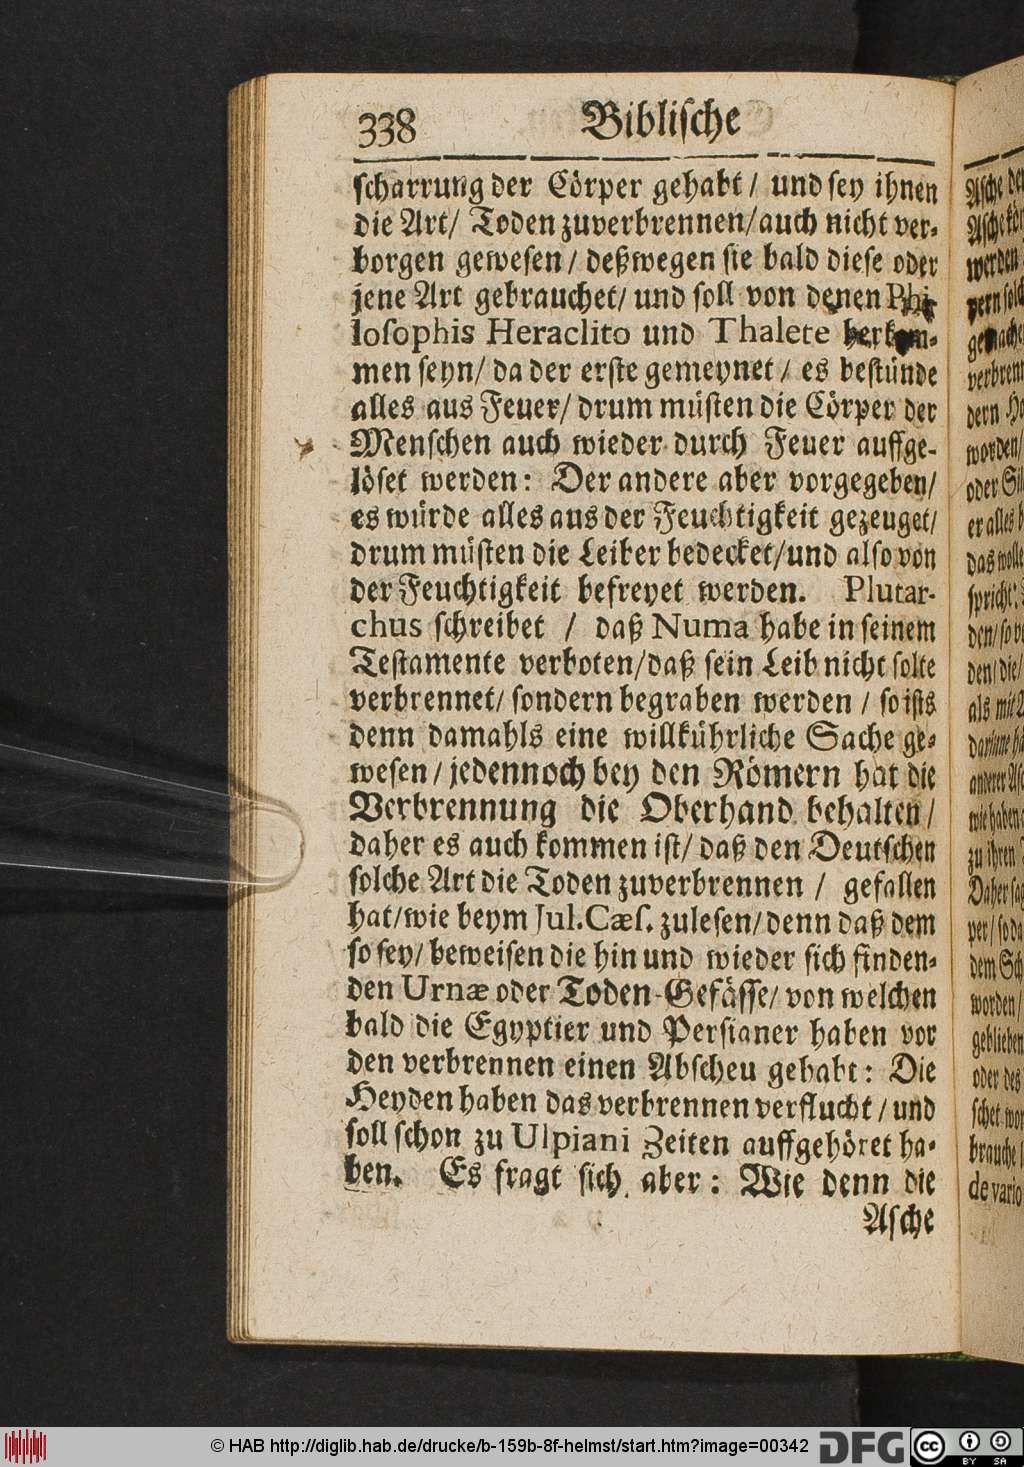 338 Biblische
scharrung der Cörper gehabt / und sey ihnen
die Art / Toden zuverbrennen / auch nicht ver-
borgen gewesen / deßwegen sie bald diese oder
jene Art gebrauchet / und soll von denen Phi-
losophis Heraclito und Thalete herkom-
men seyn / da der erste gemeynet / es bestünde
alles aus Feuer / drum müsten die Cörper der
Menschen auch wieder durch Feuer auffge-
löset werden: Der andere aber vorgegeben /
es würde alles aus der Feuchtigkeit gezeuget /
drum müsten die Leiber bedecket / und also von
der Feuchtigkeit befreyet werden. Plutar-
chus schreibet / daß Numa habe in seinem
Testamente verboten / daß sein Leib nicht solte
verbrennet / sondern begraben werden / so ists
denn damahls eine willkührliche Sache ge-
wesen / jedennoch bey den Römern hat die
Verbrennung die Oberhand behalten /
daher es auch kommen ist / daß den Deutschen
solche Art die Toden zuverbrennen / gefallen
hat / wie beym Jul. Cæs. zulesen / denn daß dem
so sey / beweisen die hin und wieder sich finden-
den Urnæ oder Toden-Gefässe / von welchen
bald die Egyptier und Persianer haben vor
den verbrennen einen Abscheu gehabt: Die
Heyden haben das verbrennen verflucht / und
soll schon zu Ulpiani Zeiten auffgehöret ha-
ben. Es fragt sich aber: Wie denn die
Asche
© HAB http://diglib.hab.de/drucke/b-159b-8f-helmst/start.htm?image=00342
DFG
cc BY SA